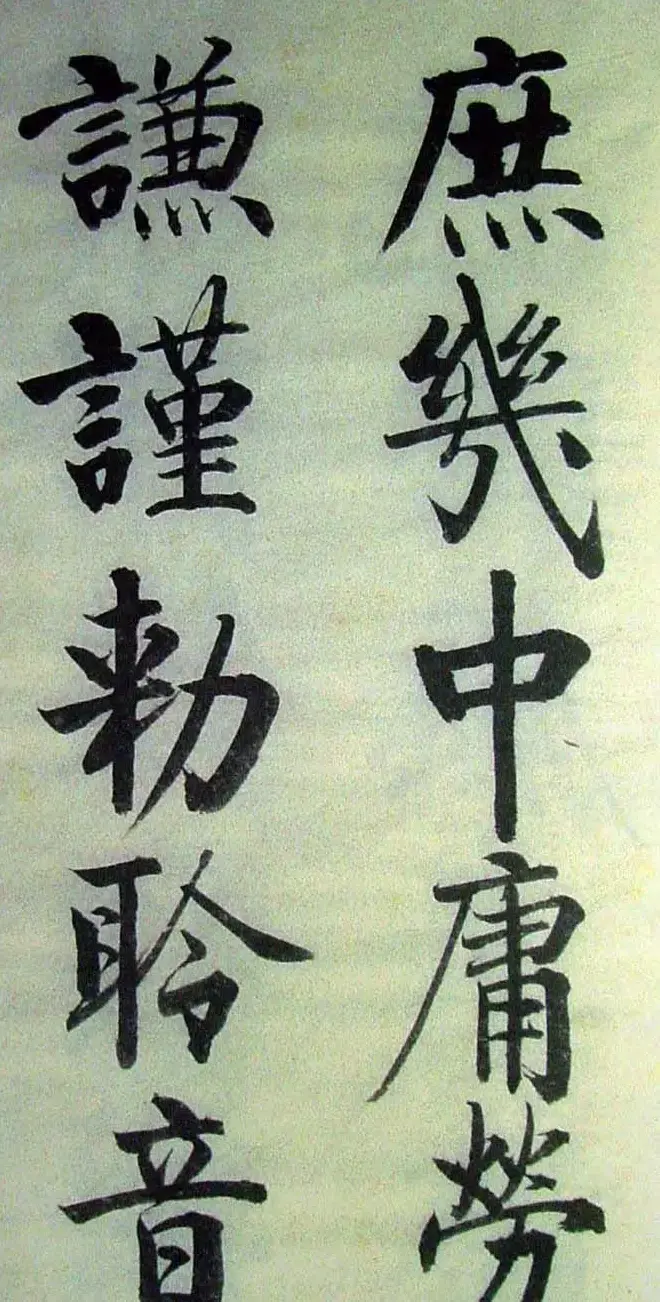 庶幾中庸勞
謙謹勅聆音